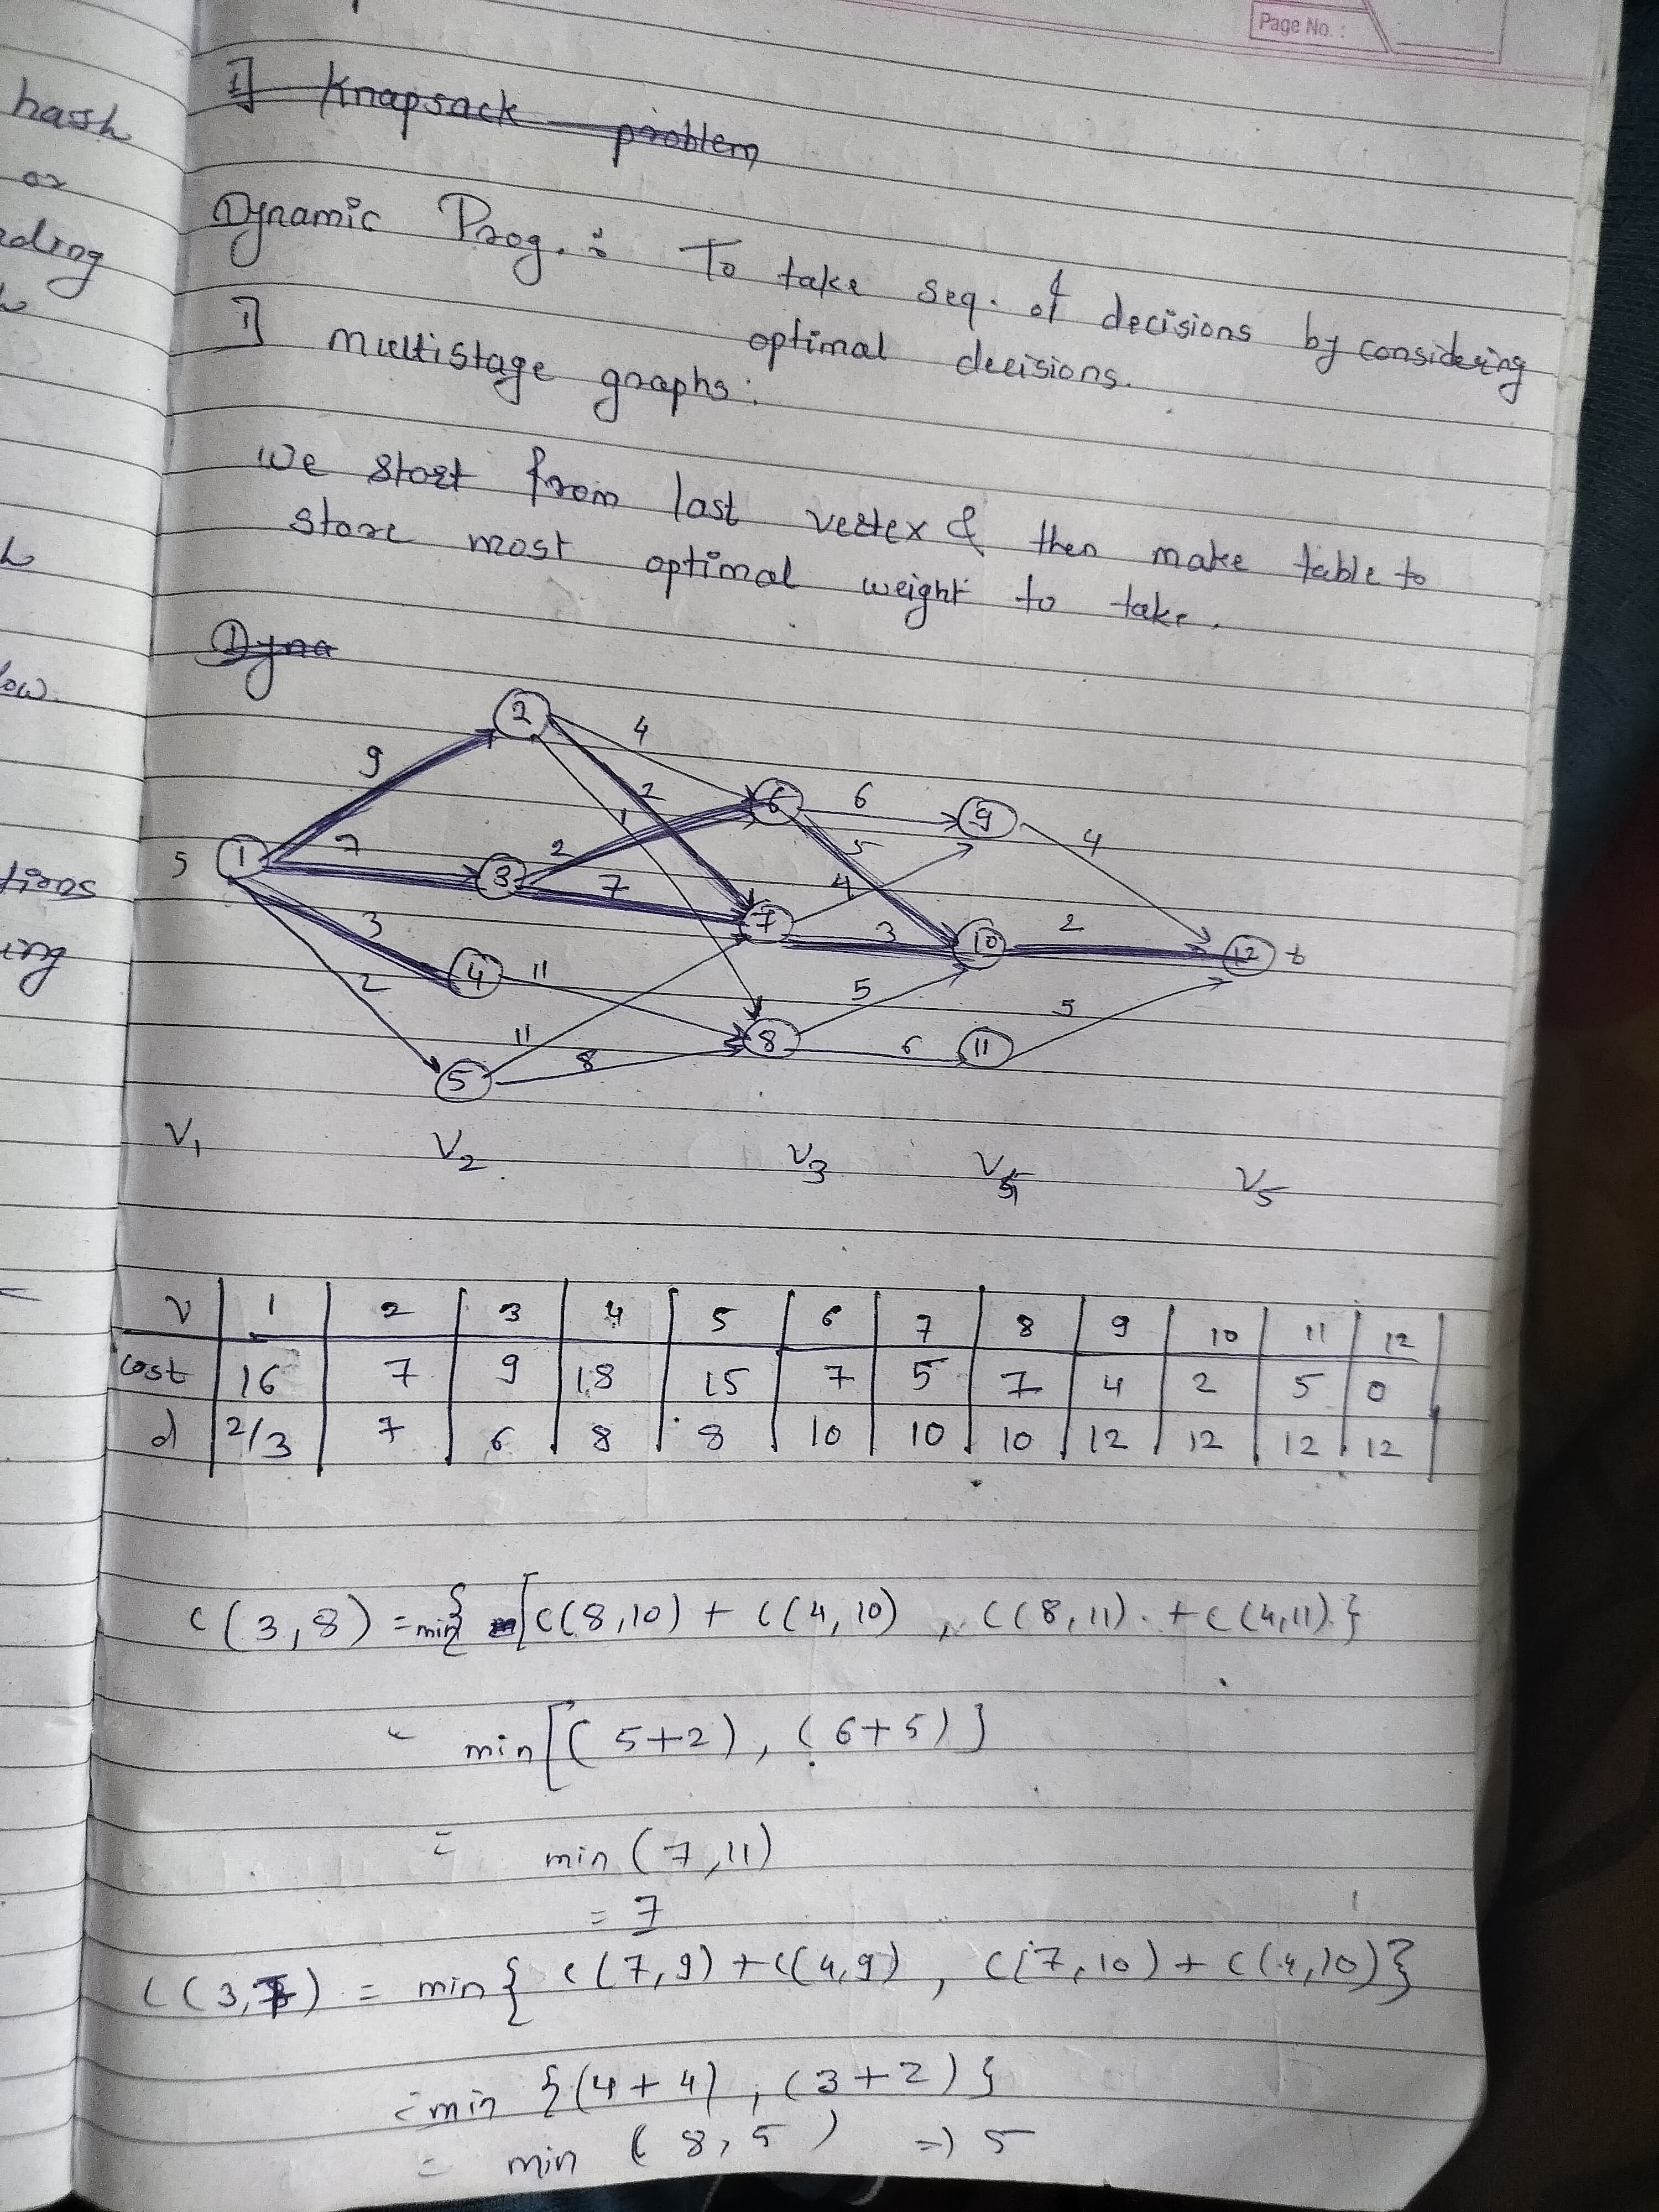 Page No. :
hash
or
ading
low.
tions
ing
1] Knapsack problem
Dynamic Prog. : To take seq. of decisions by considering
optimal decisions.
1] multistage graphs:
we start from last vertex & then make table to
store most optimal weight to take.
Dyna
2
9 4
2 1
6 6 9
s 1 7 3 2 7 5 4
4
3 4 11 7 3 10 2 12 t
2 11 8 5 6 11 5
5 8
V1 V2 V3 V4 V5
v 1 2 3 4 5 6 7 8 9 10 11 12
cost 16 7 9 18 15 7 5 7 4 2 5 0
d 2/3 7 6 8 8 10 10 10 12 12 12 12
c(3,8) = min{ [c(8,10) + c(4,10) , c(8,11) + c(4,11)}
= min[(5+2), (6+5)]
= min (7,11)
= 7
c(3,7) = min{ c(7,9) + c(4,9) , c(7,10) + c(4,10)}
= min {(4+4), (3+2)}
= min (8,5) => 5